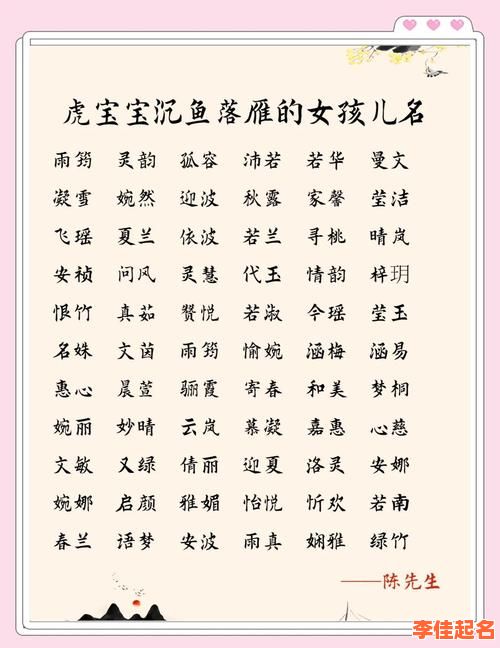 虎宝宝沉鱼落雁的女孩儿名
雨筠 灵韵 孤容 沛若 若华 曼文
凝雪 婉然 迎波 秋露 家馨 莹洁
飞瑶 夏兰 依波 若兰 寻桃 晴岚
安祯 问风 灵慧 代玉 情韵 梓玥
恨竹 真茹 赟悦 若淑 今瑶 莹玉
名姝 文茵 雨筠 愉婉 涵梅 涵易
惠心 晨萱 骊霞 寄春 和美 梦桐
婉丽 妙晴 云岚 慕凝 嘉惠 心慈
文敏 又绿 倩丽 迎夏 洛灵 安娜
婉娜 启颜 雅媚 怡悦 忻欢 若南
春兰 语梦 安波 雨真 娴雅 绿竹
——陈先生
李佳起名